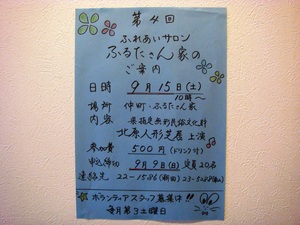 第4回
ふれあいサロン
ふるたさん家の
ご案内
日時 9月15日(土)
10時〜
場所 仲町・ふるたさん家
内容 県指定無形民俗文化財
北原人形芝居 上演
参加費 500円(ドリンク付)
申込締切 9月9日(日) 定員20名
連絡先 22-1586
ボランティアスタッフ募集中!!
毎月第3土曜日